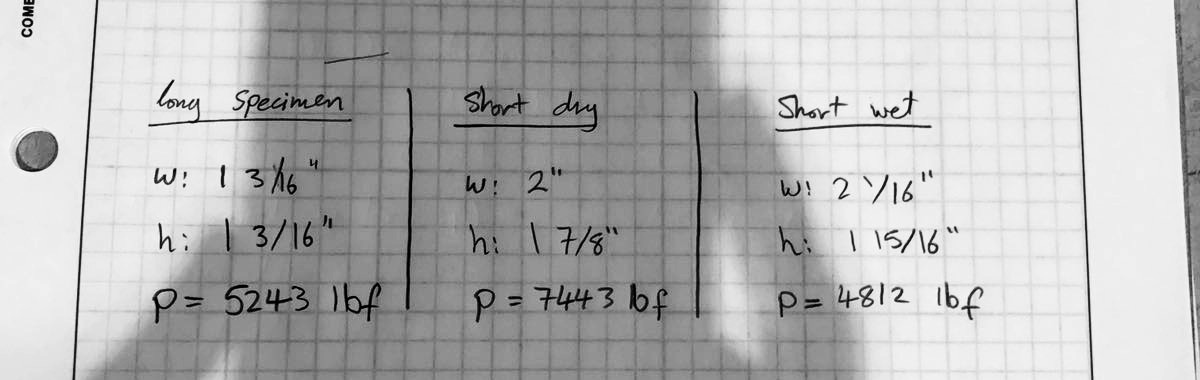 COME
long Specimen
w: 1 3/16"
h: 1 3/16"
P = 5243 lbf
Short dry
w: 2"
h: 1 7/8"
P = 7443 lbf
Short wet
w: 2 1/16"
h: 1 15/16"
P = 4812 lbf